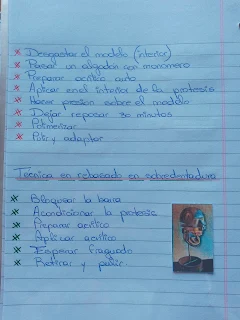 * Desgastar el modelo (interior)
* Pasar un algodon con monomero
* Preparar acrilico auto
* Aplicar en el interior de la protesis
* Hacer presion sobre el modelo
* Dejar reposar 30 minutos
* Polimerizar
* Pulir y adaptar
Técnica en rebasado en sobredentadura
* Bloquear la barra
* Acondicionar la protesis
* Preparar acrilico
* Aplicar acrilico
* Esperar fraguado
* Retirar y pulir